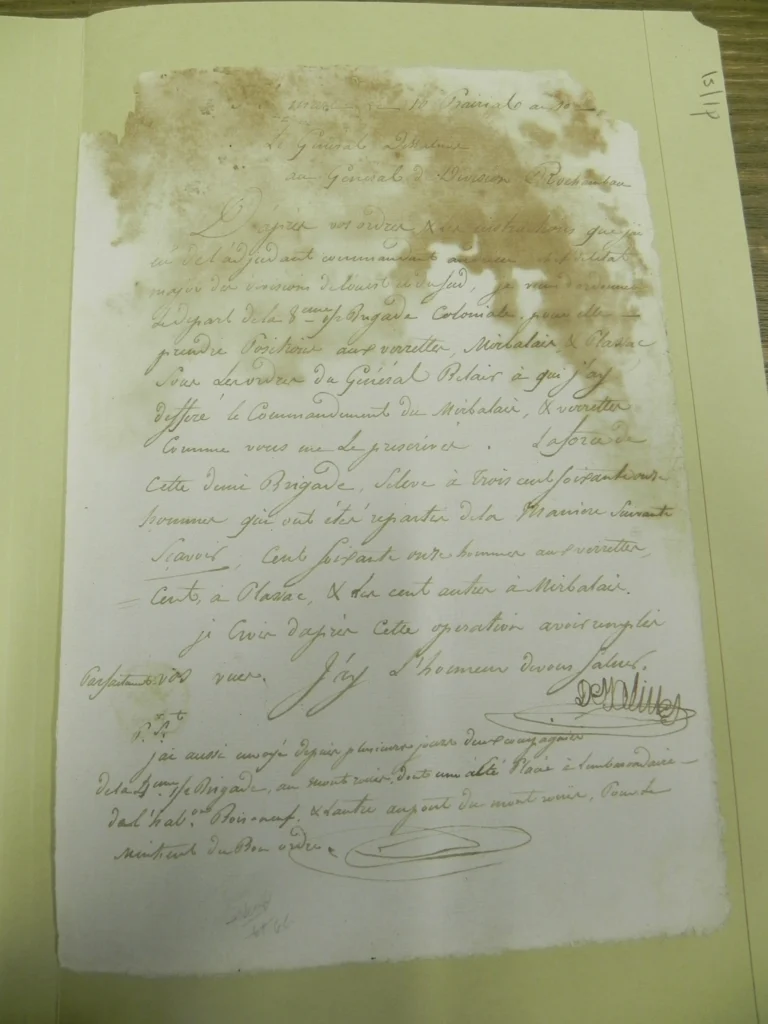 10 Prairial an 10
Le Général Dessalines
au Général de Division Rochambeau
D'après vos ordres & les instructions que j'ai
eu de l'adjudant commandant chef de l'état
major des divisions de l'ouest et du sud, je viens d'ordonner
le départ de la 8eme 1/2 Brigade Coloniale, pour elle
prendre Position aux verrettes, Mirbalais, & Plassac
Sous Les ordres du Général Belair à qui j'ay
differé le Commandement du Mirbalais, & verrettes
Comme vous me Le prescrivés. La force de
Cette demie Brigade, S'eleve à Trois cent Soixante onze
hommes qui ont étés répartis de la Maniere Suivante
Scavoir, Cent Soixante onze hommes aux verrettes,
Cent, à Plassac, & Les cent autres à Mirbalais.
je Crois d'après Cette operation avoir remplis
Parfaitement vos vues. J'ay L'honneur de vous Saluer.
Dessalines
P. St
j'ai aussi envoyé depuis plusieurs jours deux compagnies
de la 4eme 1/2 Brigade, au montrouis, dont une a été Placée à L'ambarcadaire
de l'hab.on Boisneuf, & L'autre au pont du montrouis, Pour Le
Mintient du Bon ordre.
15/17